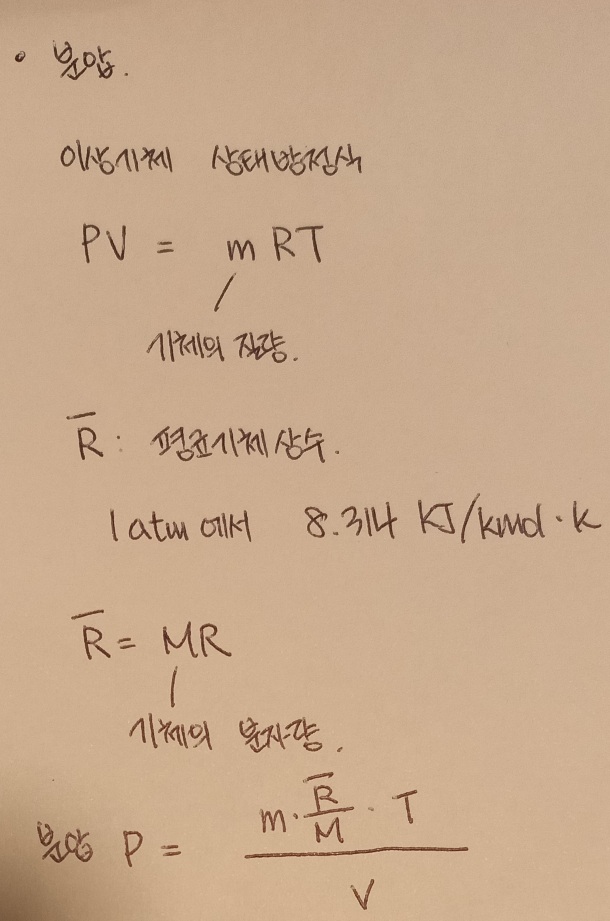 • 분압.
이상기체 상태방정식
PV = mRT
기체의 질량.
R̅ : 평균기체상수.
1atm에서 8.314 KJ/kmol·k
R̅ = MR
기체의 분자량.
분압 P = (m · R̅/M · T) / V